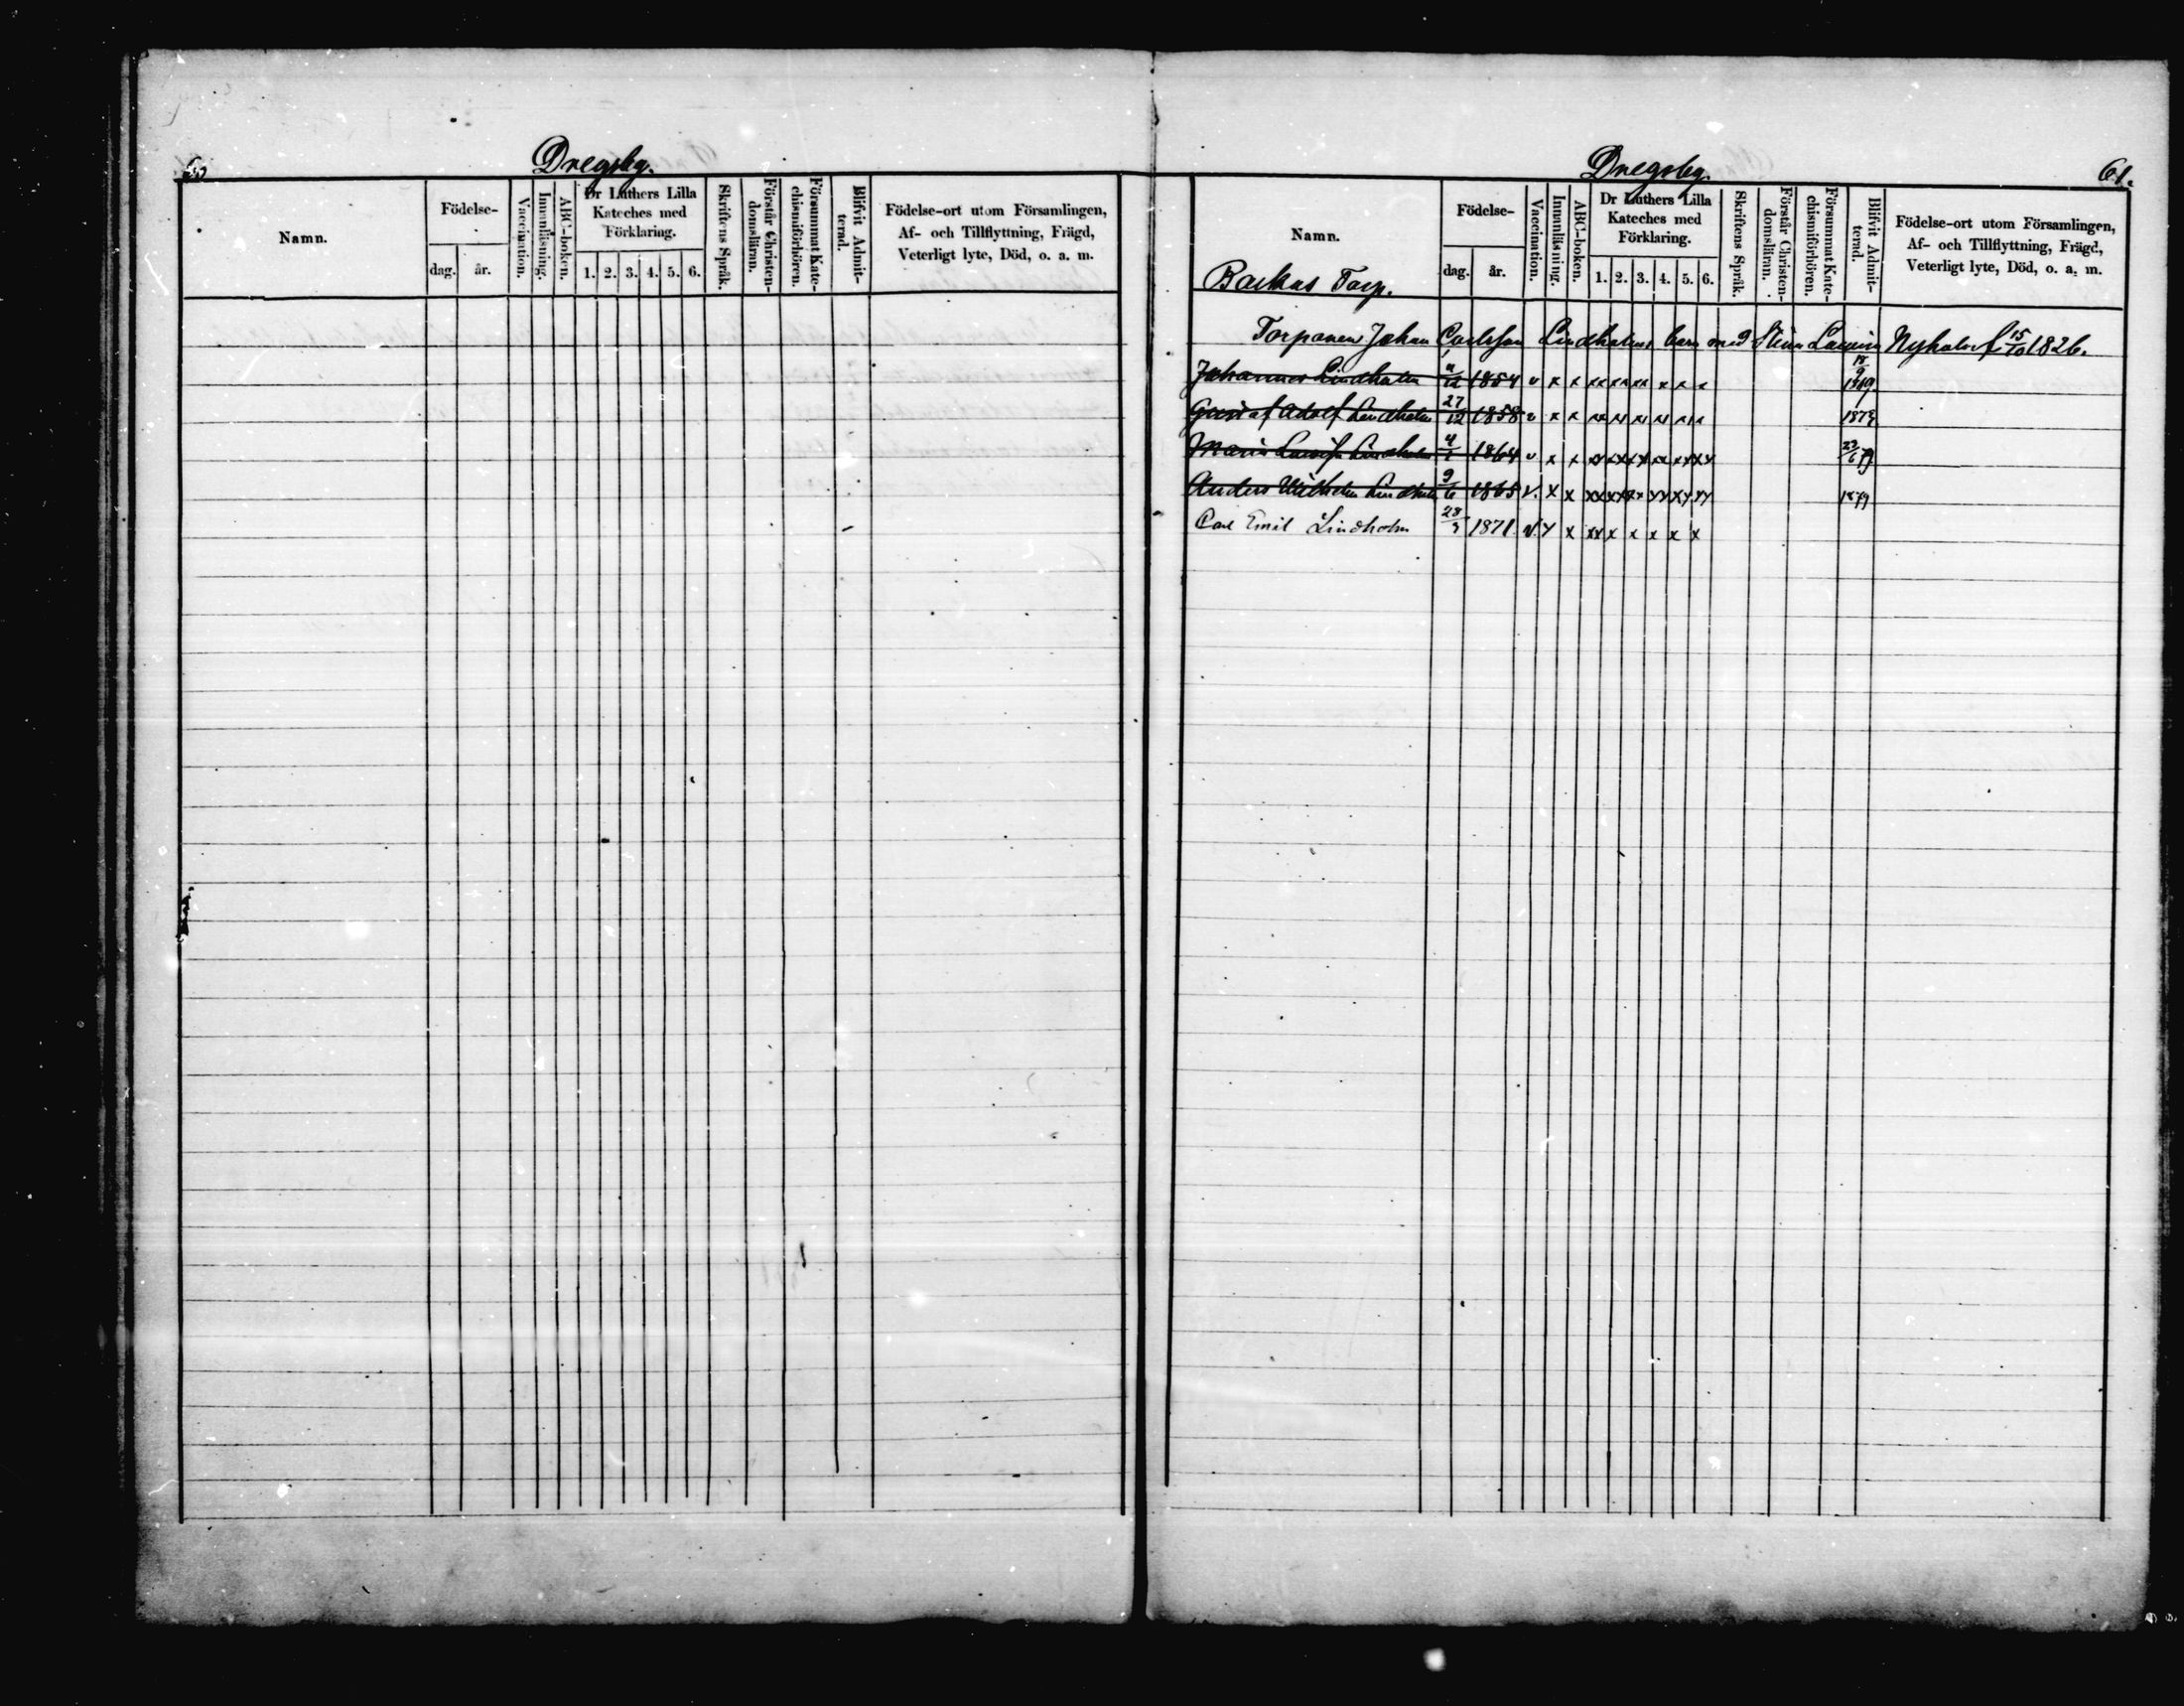 Dregsby.
Namn.
Födelse-
dag. år.
Vaccination.
Innanläsning.
ABC-boken.
Dr Luthers Lilla
Kateches med
Förklaring.
1. 2. 3. 4. 5. 6.
Skriftens Språk.
Förstår Christen-
domsläran.
Försummat Kate-
chismiförhören.
Blifvit Admit-
terad.
Födelse-ort utom Församlingen,
Af- och Tillflyttning, Frägd,
Veterligt lyte, Död, o. a. m.
Dregsby.
61.
Namn.
Backas Torp.
Födelse-
dag. år.
Vaccination.
Innanläsning.
ABC-boken.
Dr Luthers Lilla
Kateches med
Förklaring.
1. 2. 3. 4. 5. 6.
Skriftens Språk.
Förstår Christen-
domsläran.
Försummat Kate-
chismiförhören.
Blifvit Admit-
terad.
Födelse-ort utom Församlingen,
Af- och Tillflyttning, Frägd,
Veterligt lyte, Död, o. a. m.
Torparen Johan Carlsson Lindholms barn med Stina Lovisa Nyholm f. 15/10 1826.
Johannes Lindholm 1854 v x x xx xx xx x x x
Gustaf Adolf Lindholm 27/12 1858 v x x xx xx xx xx xx 1873
Maria Lovisa Lindholm 4/1 1864 v x x xx xx xx xx xx xx 22/6 79
Anders Wilhelm Lindholm 9/6 1865 v. x x xx xx xx xx xx xx 1879
Carl Emil Lindholm 28/3 1871 v. x x xx x x x x x